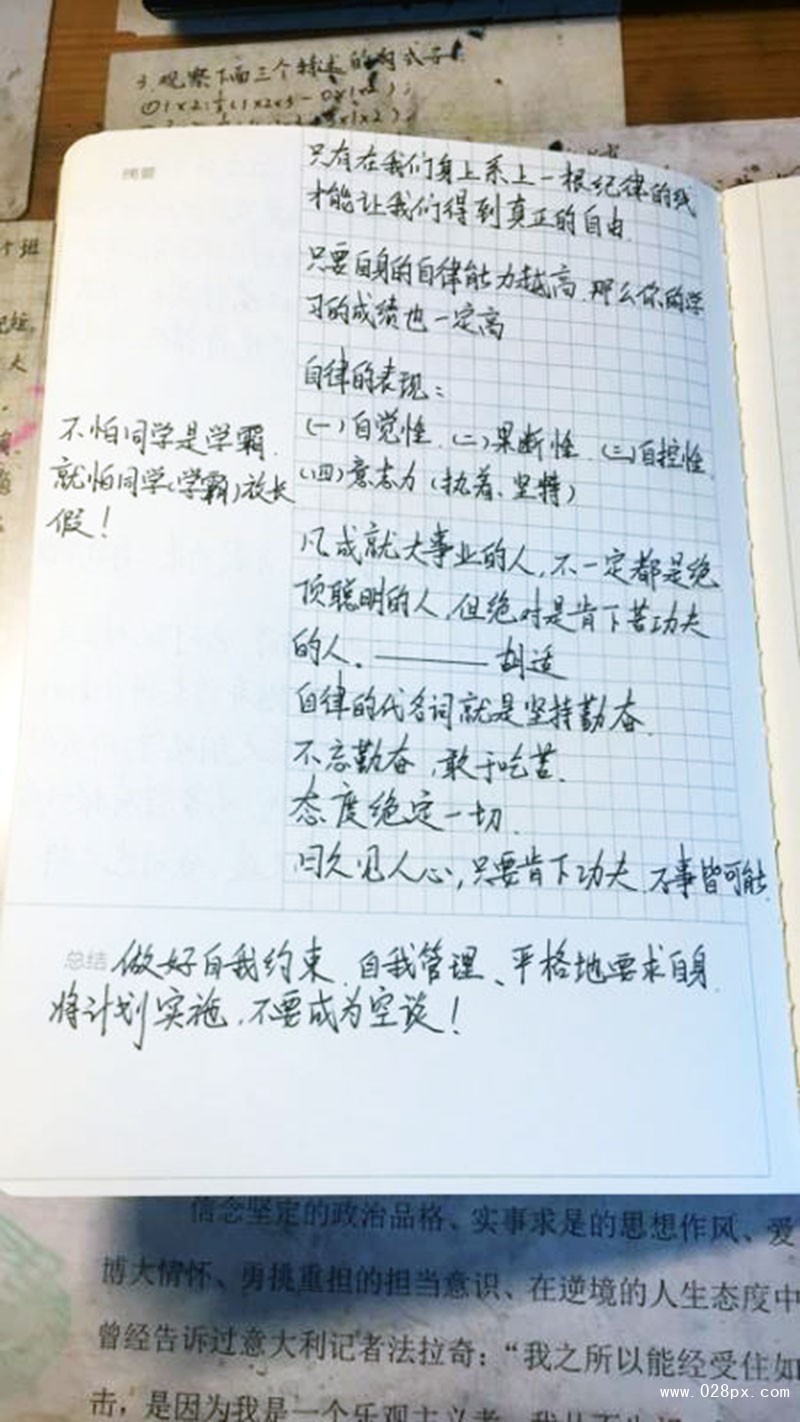 3.观察下面三个特述的
纲要
只有在我们身上系上一根纪律的线
才能让我们得到真正的自由.
只要自身的自律能力越高.那么你的学
习的成绩也一定高
自律的表现:
(一)自觉性.(二)果断性.(三)自控性.
(四)意志力(执着、坚持)
不怕同学是学霸.
就怕同学(学霸)放长
假!
凡成就大事业的人,不一定都是绝
顶聪明的人,但绝对是肯下苦功夫
的人。———胡适
自律的代名词就是坚持勤奋.
不忘勤奋,敢于吃苦.
态度绝定一切.
日久见人心,只要肯下功夫 万事皆可能.
总结 做好自我约束.自我管理、严格地要求自身.
将计划实施,不要成为空谈!
信念坚定的政治品格、实事求是的思想作风、爱
博大情怀、勇挑重担的担当意识、在逆境的人生态度中
曾经告诉过意大利记者法拉奇:“我之所以能经受住如
击,是因为我是一个乐观主义者
www.028px.com